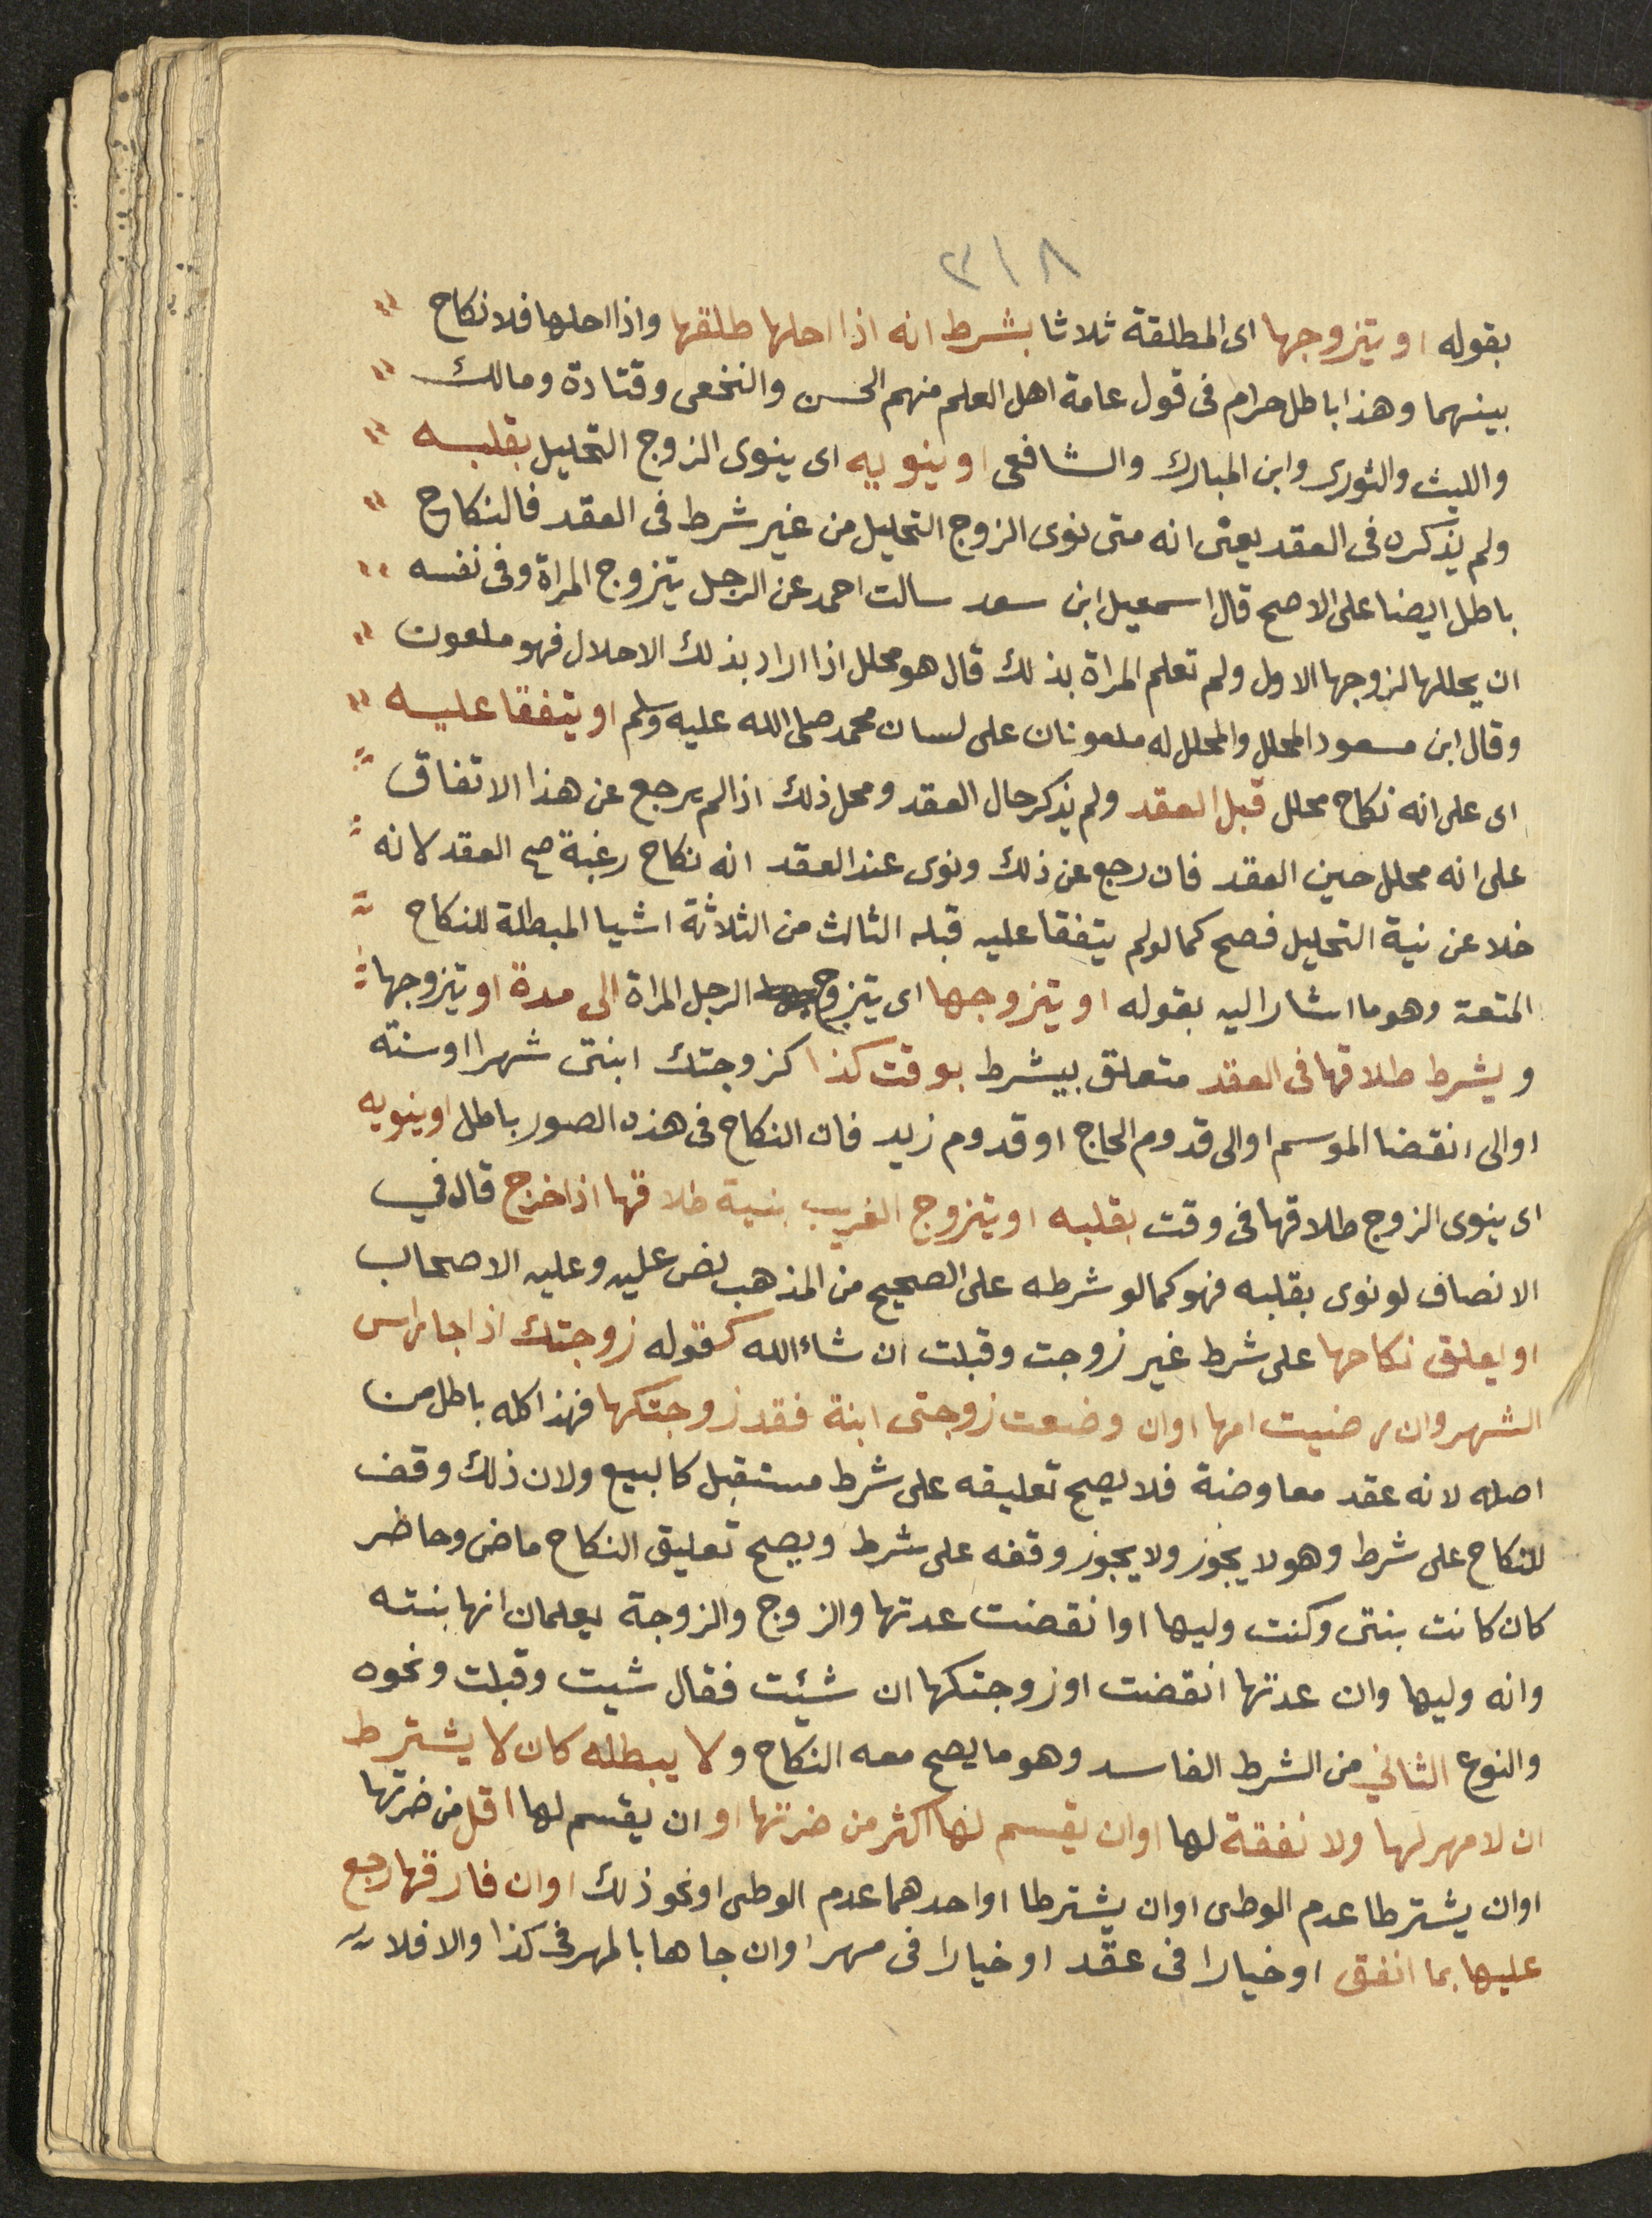 ٣١٨
بقوله او يتزوجها اى المطلقة ثلاثا بشرط انه اذا احلها طلقها واذا احلها فلا نكاح
بينهما وهذا باطل حرام فى قول عامة اهل العلم منهم الحسن والنخعى وقتادة ومالك
والليث والثورى وابن المبارك والشافعى او ينويه اى ينوى الزوج التحليل بقلبه
ولم يذكره فى العقد يعنى انه متى نوى الزوج التحليل من غير شرط فى العقد فالنكاح
باطل ايضا على الاصح قال اسمعيل ابن سعد سالت احمد عن الرجل يتزوج المراة وفى نفسه
ان يحللها لزوجها الاول ولم تعلم المراة بذلك قال هو محلل اذا اراد بذلك الاحلال فهو ملعون
وقال ابن مسعود المحلل والمحلل له ملعونان على لسان محمد صلى الله عليه وسلم او يتفقا عليه
اى على انه نكاح محلل قبل العقد ولم يذكر حال العقد ومحل ذلك اذا لم يرجع عن هذا الاتفاق
على انه محلل حين العقد فان رجع عن ذلك ونوى عند العقد انه نكاح رغبة صح العقد لانه
خلا عن نية التحليل فصح كما لو لم يتفقا عليه قبله الثالث من الثلاثة اشيا المبطلة للنكاح
المتعة وهو ما اشار اليه بقوله او يتزوجها اى يتزوج الرجل المراة الى مدة او يتزوجها
ويشرط طلاقها فى العقد متعلق بيشرط بوقت كذا كزوجتك ابنتى شهرا او سنة
او الى انقضا الموسم او الى قدوم الحاج او قدوم زيد فان النكاح فى هذه الصور باطل او ينويه
اى ينوى الزوج طلاقها فى وقت بقلبه او يتزوج الغريب بنية طلاقها اذا خرج قال في
الانصاف لو نوى بقلبه فهو كما لو شرطه على الصحيح من المذهب نص عليه وعليه الاصحاب
او يعلق نكاحها على شرط غير زوجت وقبلت ان شاء الله كقوله زوجتك اذا جا راس
الشهر وان رضيت امها او ان وضعت زوجتى ابنة فقد زوجتكها فهذا كله باطل من
اصله لانه عقد معاوضة فلا يصح تعليقه على شرط مستقبل كالبيع ولان ذلك وقف
للنكاح على شرط وهو لا يجوز ولا يجوز وقفه على شرط ويصح تعليق النكاح ماض وحاضر
كان كانت بنتى وكنت وليها او انقضت عدتها والزوج والزوجة يعلمان انها بنته
وانه وليها وان عدتها انقضت او زوجتكها ان شئت فقال شيت وقبلت ونحوه
والنوع الثاني من الشرط الفاسد وهو ما يصح معه النكاح ولا يبطله كان لا يشترط
ان لا مهر لها ولا نفقة لها او ان يقسم لها اكثر من ضرتها او ان يقسم لها اقل من ضرتها
او ان يشترطا عدم الوطى او ان يشترطا او احدهما عدم الوطى او نحو ذلك او ان فارقها رجع
عليها بما انفق او خيارا فى عقد او خيارا فى مهر او ان جاها بالمهر فى كذا والا فلا